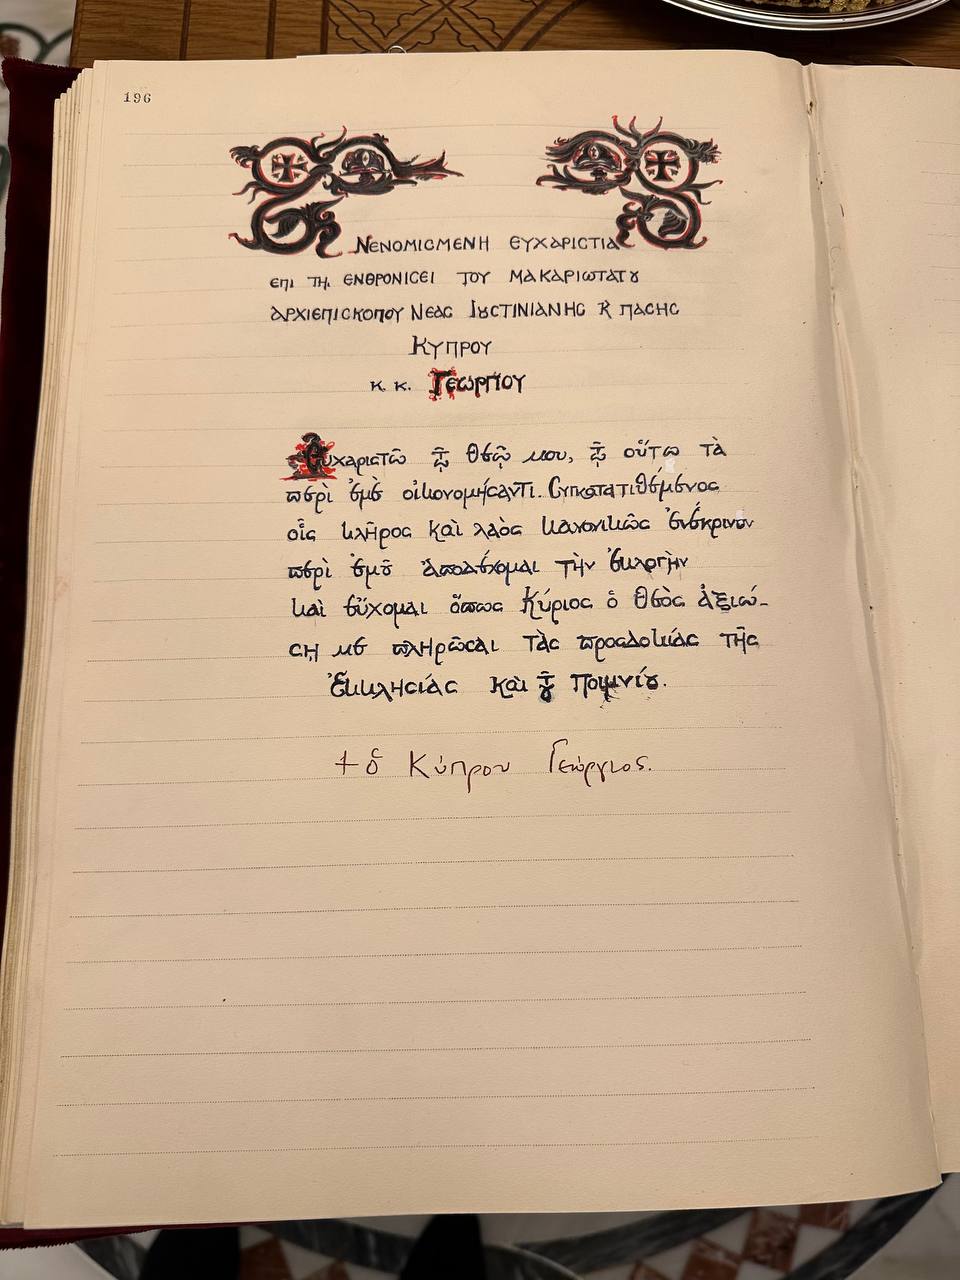 196
Νενομιςμενη ευχαριςτια
επι τη ενθρονιςει του μακαριωτατȣ
αρχιεπιςκοπου Νεας Ιȣςτινιανης ϗ παςης
Κυπρου
κ. κ. Γεωργιου
Εὐχαριστῶ τῷ Θεῷ μου, τῷ οὕτω τὰ
περὶ ἐμὲ οἰκονομήσαντι. Συγκατατιθέμενος
οἷς κλῆρος καὶ λαὸς κανονικῶς ἐνέκρινον
περὶ ἐμοῦ ἀποδέχομαι τὴν ἐκλογὴν
καὶ εὔχομαι ὅπως Κύριος ὁ Θεὸς ἀξιώ-
σῃ με πληρῶσαι τὰς προσδοκίας τῆς
Ἐκκλησίας καὶ τȣ͂ Ποιμνίȣ.
+ ὁ Κύπρου Γεώργιος.